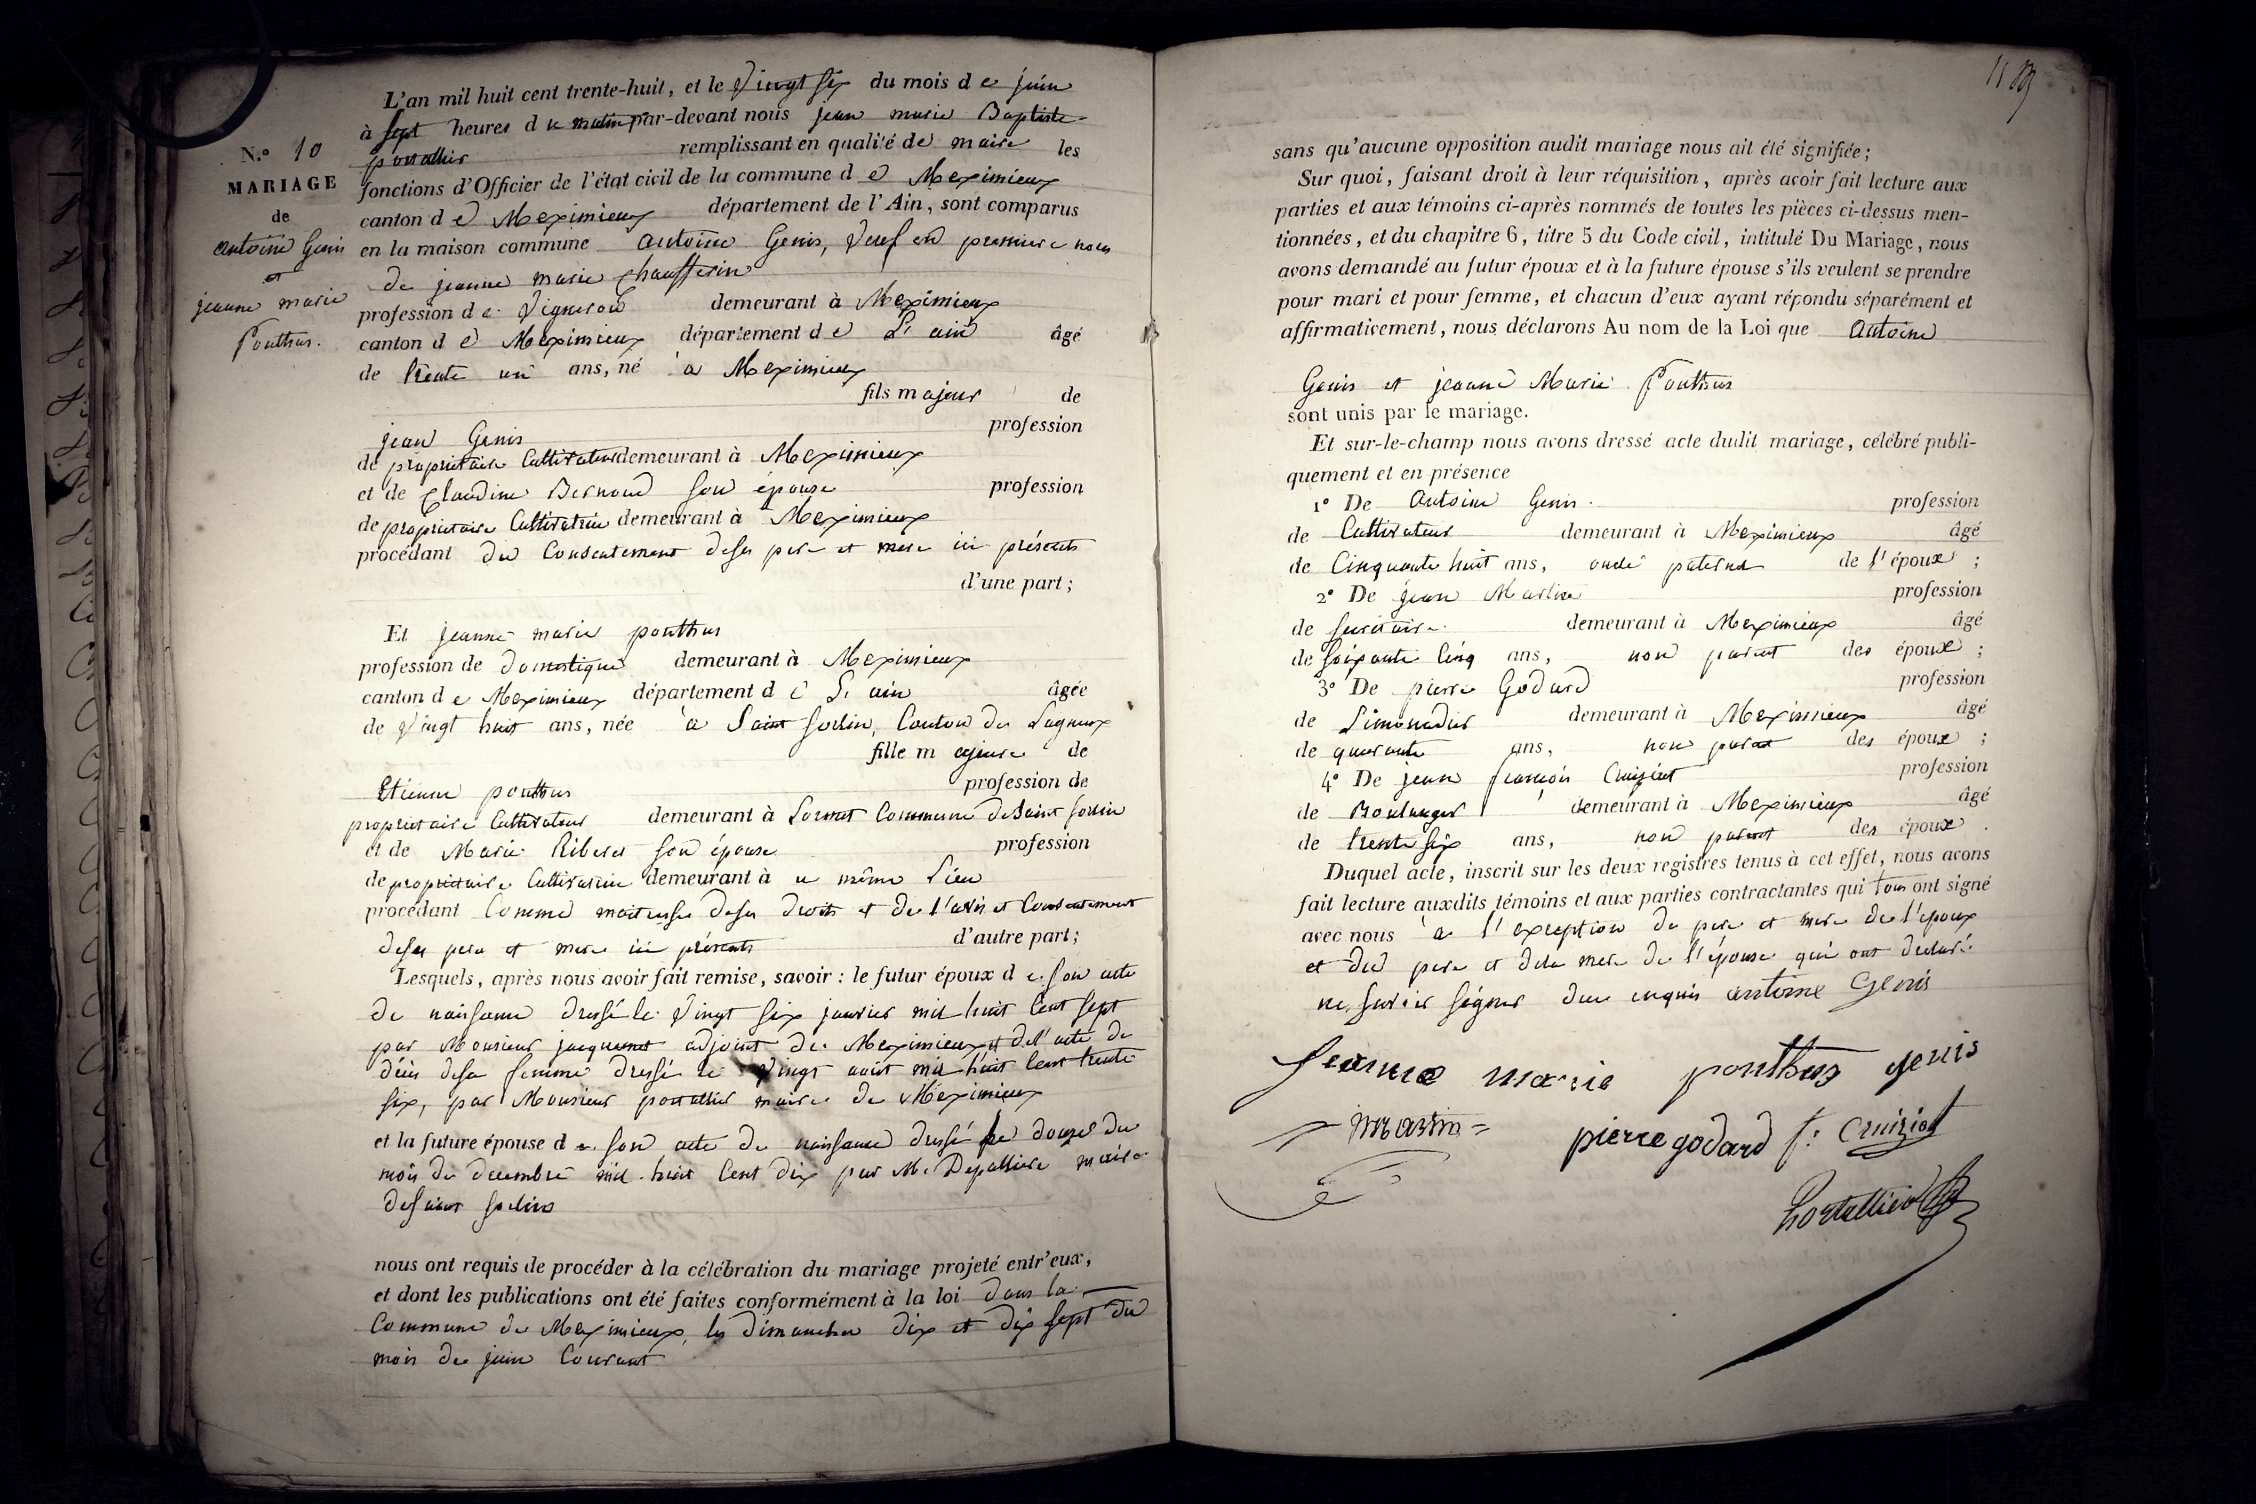 N.o 10
MARIAGE
de
antoine Genis
et
jeanne marie
Ponthus.
L'an mil huit cent trente-huit, et le Vingt six du mois de juin
à sept heures du matin par-devant nous jean marie Baptiste
portallier remplissant en qualité de maire les
fonctions d'Officier de l'état civil de la commune de Meximieux
canton de Meximieux département de l'Ain, sont comparus
en la maison commune antoine Genis, Veuf en premiere noces
de jeanne marie chaufferin
profession de Vigneron demeurant à Meximieux
canton de Meximieux département de L'ain âgé
de trente un ans, né à Meximieux
fils majeur de
jean Genis profession
de proprietaire Cultivateur demeurant à Meximieux
et de Claudine Bernoud son épouse profession
de proprietaire Cultivatrice demeurant à Meximieux
procédant du Consentement deses pere et mere ici présents
d'une part;
Et jeanne marie ponthus
profession de domestique demeurant à Meximieux
canton de Meximieux département de L'ain âgée
de Vingt huit ans, née à Saint Sorlin, Canton de Lagnieux
fille majeure de
Etienne ponthus profession de
proprietaire Cultivateur demeurant à Commune de Saint Sorlin
et de Marie Riberet son épouse profession
de proprietaire Cultivatrice demeurant à u même Lieu
procédant Comme maitresse deses droits et de l'avis et Consentement
deses pere et mere ici présents d'autre part;
Lesquels, après nous avoir fait remise, savoir : le futur époux de son acte
de naissance dressé le Vingt six janvier mil huit Cent sept
par Monsieur jacquemet adjoint de Meximieux et de l'acte de
décès desa femme dressé le Vingt août mil huit Cent trente
six, par Monsieur portallier maire de Meximieux
et la future épouse de son acte de naissance dressé le douze du
mois de decembre mil huit Cent dix par M. Depalliere maire
desaint sorlin
nous ont requis de procéder à la célébration du mariage projeté entr'eux,
et dont les publications ont été faites conformément à la loi dans la
Commune de Meximieux, les dimanches dix et dix sept du
mois de juin Courant
sans qu'aucune opposition audit mariage nous ait été signifiée;
Sur quoi, faisant droit à leur réquisition, après avoir fait lecture aux
parties et aux témoins ci-après nommés de toutes les pièces ci-dessus men-
tionnées, et du chapitre 6, titre 5 du Code civil, intitulé Du Mariage, nous
avons demandé au futur époux et à la future épouse s'ils veulent se prendre
pour mari et pour femme, et chacun d'eux ayant répondu séparément et
affirmativement, nous déclarons Au nom de la Loi que Antoine
Genis et jeanne Marie Ponthus
sont unis par le mariage.
Et sur-le-champ nous avons dressé acte dudit mariage, célébré publi-
quement et en présence
1o De Antoine Genis profession
de Cultivateur demeurant à Meximieux âgé
de Cinquante huit ans, oncle paternel de l'époux ;
2o De jean Martin profession
de secretaire demeurant à Meximieux âgé
de soixante Cinq ans, non parent des époux ;
3o De pierre Godard profession
de Limonadier demeurant à Meximieux âgé
de quarante ans, non parent des époux ;
4o De jean françois Cruiziat profession
de Boulanger demeurant à Meximieux âgé
de trente six ans, non parent des époux .
Duquel acte, inscrit sur les deux registres tenus à cet effet, nous avons
fait lecture auxdits témoins et aux parties contractantes qui tous ont signé
avec nous à l'exception de pere et mere de l'epoux
et du pere et dela mere de l'épouse qui ont declaré
ne savoir signer de ce enquis antoine Genis
Jeanne marie ponthus genis
martin pierre godard f. Cruiziat
Portallier